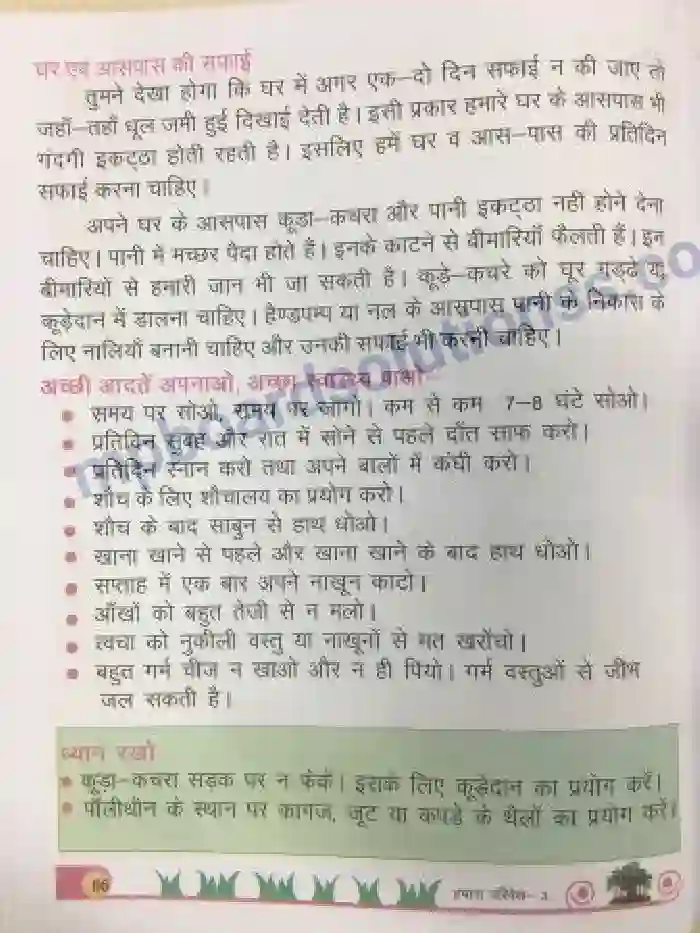 घर एवं आसपास की सफाई
तुमने देखा होगा कि घर में अगर एक–दो दिन सफाई न की जाए तो
जहाँ–तहाँ धूल जमी हुई दिखाई देती है। इसी प्रकार हमारे घर के आसपास भी
गंदगी इकट्ठा होती रहती है। इसलिए हमें घर व आस–पास की प्रतिदिन
सफाई करना चाहिए।
अपने घर के आसपास कूड़ा–कचरा और पानी इकट्ठा नहीं होने देना
चाहिए। पानी में मच्छर पैदा होते हैं। इनके काटने से बीमारियाँ फैलती हैं। इन
बीमारियों से हमारी जान भी जा सकती है। कूड़े–कचरे को घूर गड्ढे या
कूड़ेदान में डालना चाहिए। हैण्डपम्प या नल के आसपास पानी के निकास के
लिए नालियाँ बनानी चाहिए और उनकी सफाई भी करनी चाहिए।
अच्छी आदतें अपनाओ, अच्छा स्वास्थ्य पाओ–
• समय पर सोओ, समय पर जागो। कम से कम 7–8 घंटे सोओ।
• प्रतिदिन सुबह और रात में सोने से पहले दाँत साफ करो।
• प्रतिदिन स्नान करो तथा अपने बालों में कंघी करो।
• शौच के लिए शौचालय का प्रयोग करो।
• शौच के बाद साबुन से हाथ धोओ।
• खाना खाने से पहले और खाना खाने के बाद हाथ धोओ।
• सप्ताह में एक बार अपने नाखून काटो।
• आँखों को बहुत तेजी से न मलो।
• त्वचा को नुकीली वस्तु या नाखूनों से मत खरोंचो।
• बहुत गर्म चीज न खाओ और न ही पियो। गर्म वस्तुओं से जीभ
जल सकती है।
ध्यान रखो
• कूड़ा–कचरा सड़क पर न फेंकें। इसके लिए कूड़ेदान का प्रयोग करें।
• पॉलीथीन के स्थान पर कागज, जूट या कपड़े के थैलों का प्रयोग करें।
हमारा परिवेश– 3